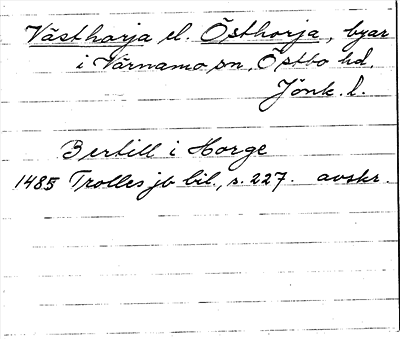 Västhorja el. Östhorja, byar
i Värnamo sn, Östbo hd,
Jönk. l.
Bertill i Horge
1485 Trolles jb bil., s. 227. avskr.